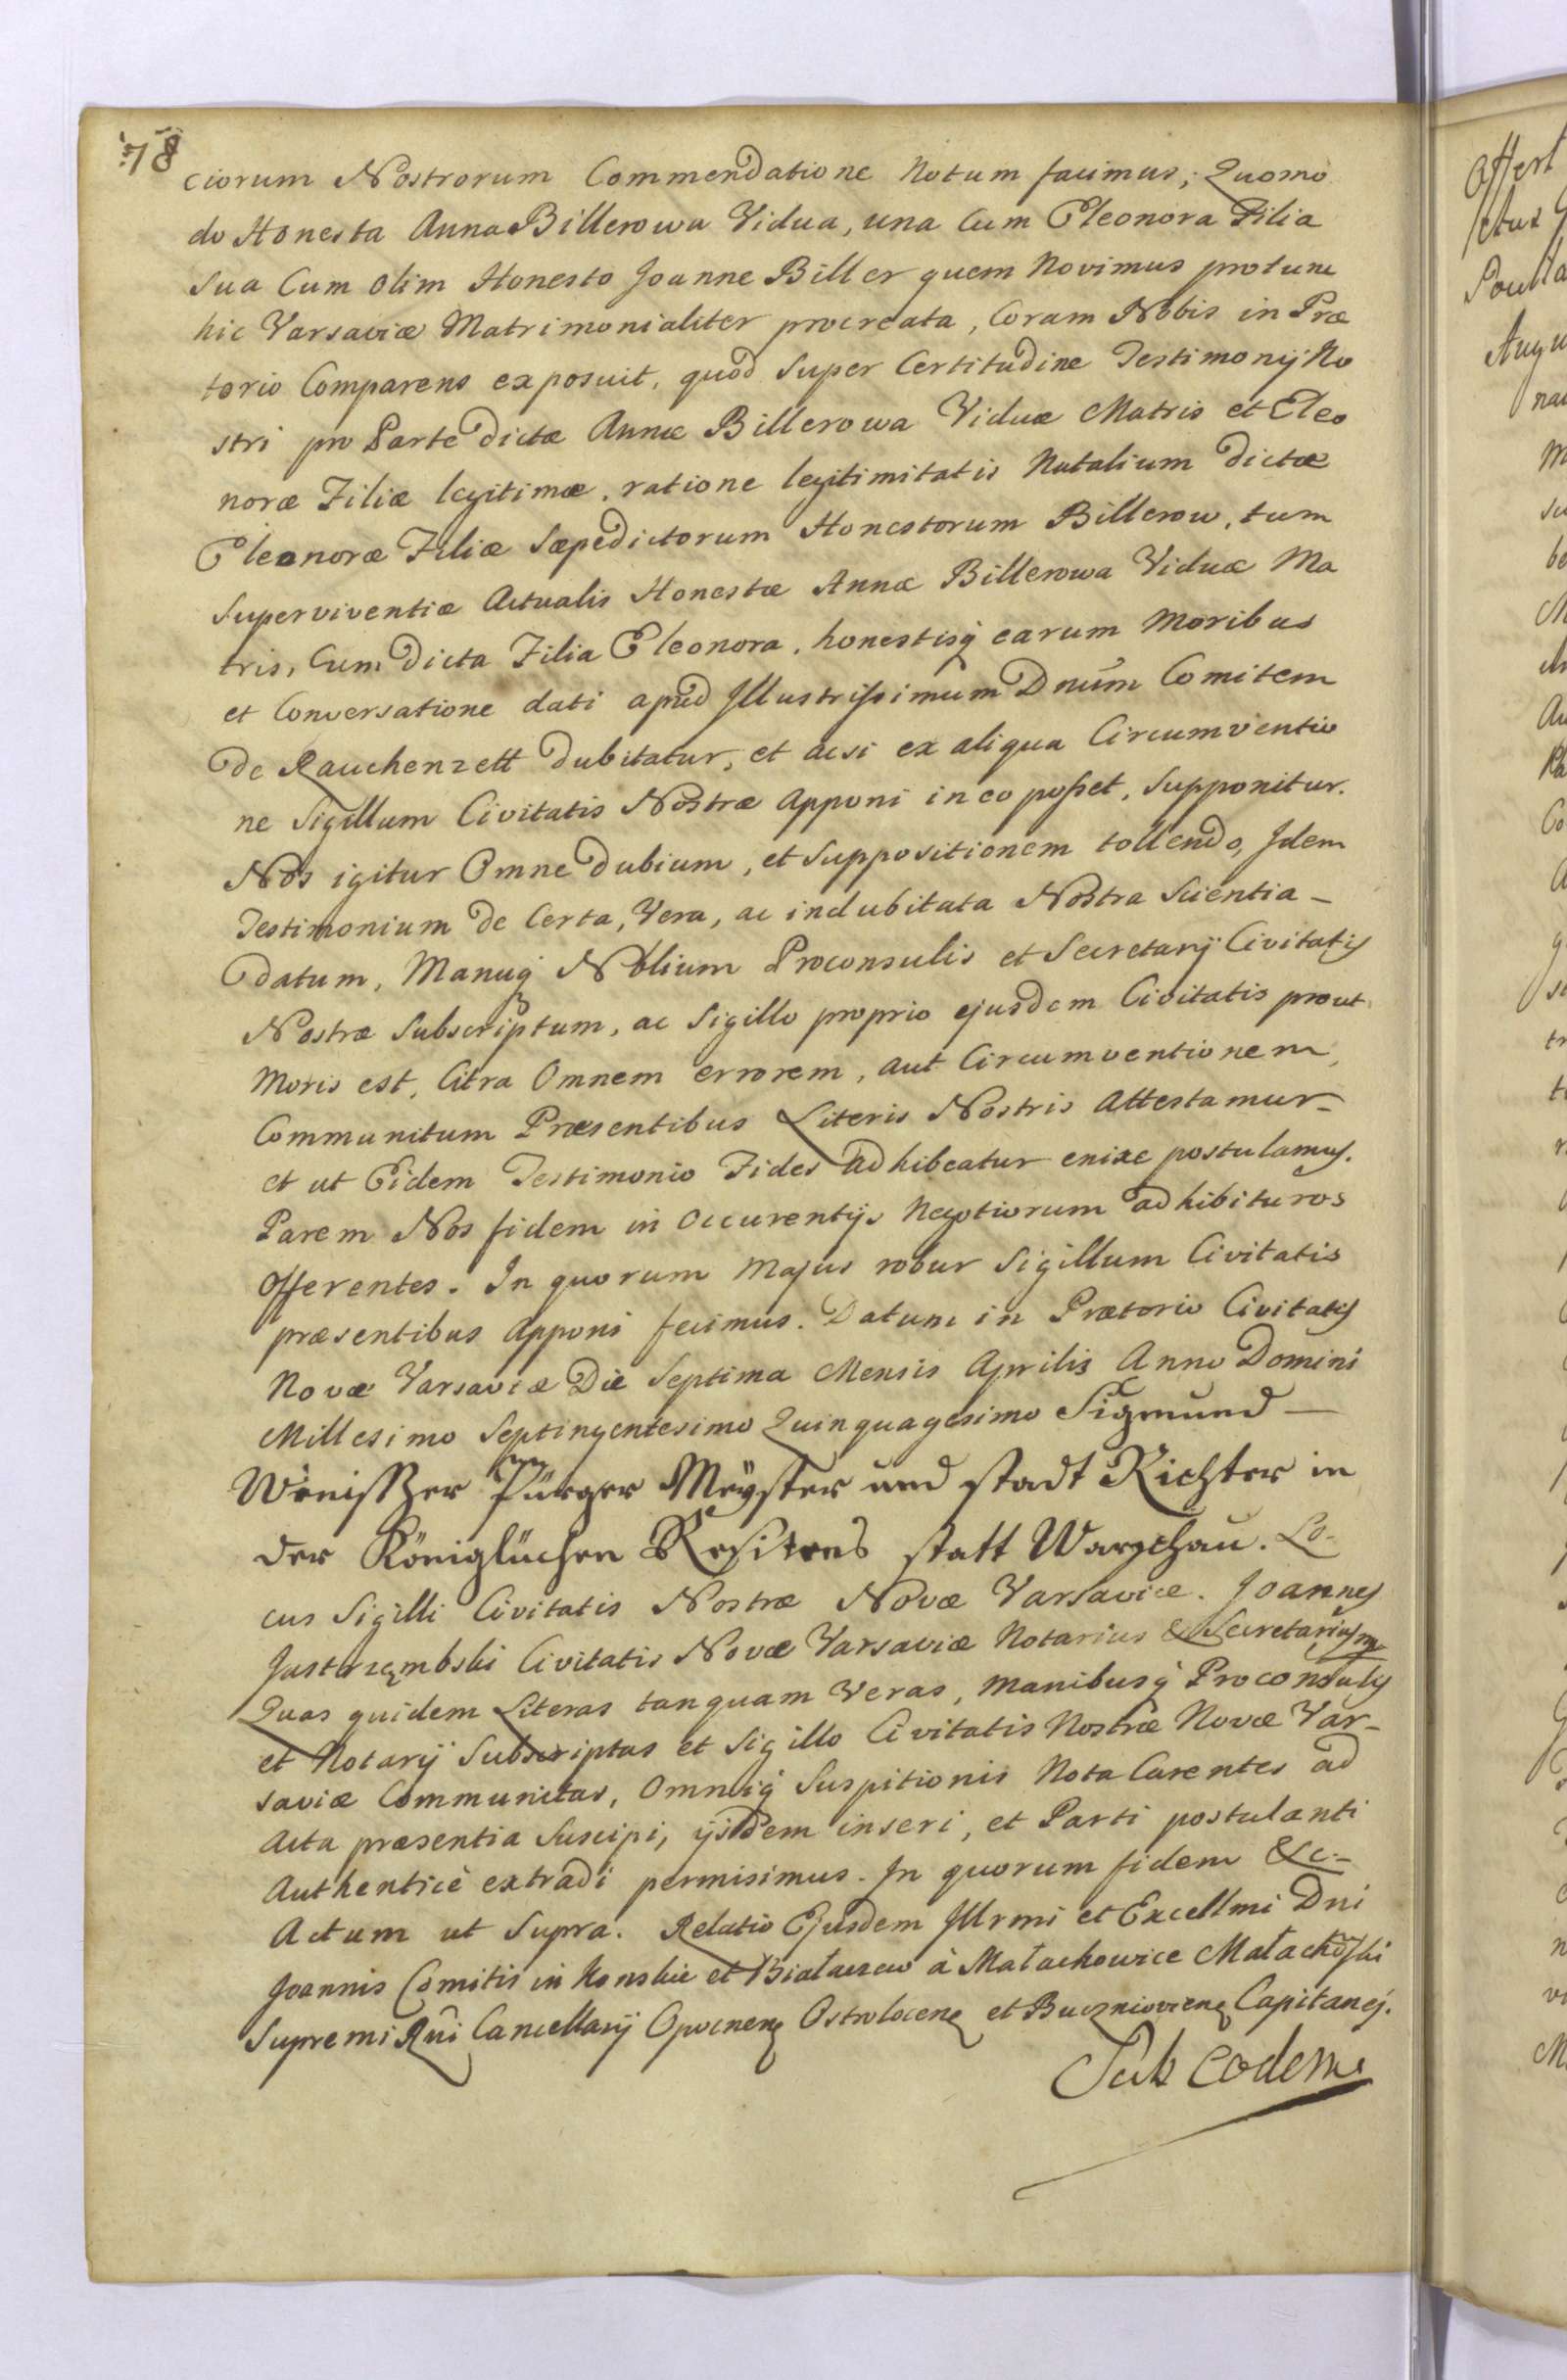 78
ciorum Nostrorum Commendatione Notum facimus; Quomo
do Honesta Anna Billerowa Vidua, una Cum Eleonora Filia
Sua Cum olim Honesto Joanne Biller quem Novimus protunc
hic Varsaviæ Matrimonialiter procreata, Coram Nobis in Præ
torio Comparens exposuit, quod Super Certitudine Testimonij No
stri pro Parte dictæ Annæ Billerowa Viduæ Matris et Eleo
noræ Filiæ legitimæ, ratione legitimitatis Natalium dictæ
Eleonoræ Filiæ Sæpedictorum Honestorum Billerow, tum
Superviventiæ Actualis Honestæ Annæ Billerowa Viduæ Ma
tris, Cum dicta Filia Eleonora, honestisq earum Moribus
et Conversatione dati apud Illustrissimum Dnum Comitem
de Rauchenzett dubitatur, et acsi ex aliqua Circumventio
ne Sigillum Civitatis Nostræ Apponi in eo posset, Supponitur.
Nos igitur Omne dubium, et Suppositionem tollendo, Idem
Testimonium de Certa, Vera, ac indubitata Nostra Scientia -
datum, Manuq Nobilium Proconsulis et Secretarij Civitatis
Nostræ Subscriptum, ac Sigillo proprio ejusdem Civitatis prout
Moris est, Citra Omnem errorem, aut Circumventionem,
Communitum Præsentibus Literis Nostris Attestamur -
et ut Eidem Testimonio Fides adhibeatur enixe postulamus.
Parem Nos fidem in Occurentijs Negotiorum adhibituros
Offerentes. In quorum Majus robur Sigillum Civitatis
præsentibus Apponi fecimus. Datum in Prætorio Civitatis
Novæ Varsaviæ Die Septima Mensis Aprilis Anno Domini
Millesimo Septingentesimo Quinquagesimo Sigmund -
Pürger Meyster und stadt Richter in
der Königlüchen Resitens statt Warschau. Lo-
cus Sigilli Civitatis Nostræ Novæ Varsaviæ. Joannes
Jastrzembski Civitatis Novæ Varsaviæ Notarius & Secretarius mp
Quas quidem Literas tanquam Veras, Manibusq Proconsulis
et Notarij Subscriptas et Sigillo Civitatis Nostræ Novæ Var-
saviæ Communitas, Omniq Suspitionis Nota Carentes ad
Acta præsentia Suscipi, ijsdem inseri, et Parti postulanti
Authenticè extradi permisimus. In quorum fidem &c.-
Actum ut Supra. Relatio Ejusdem Illrmi et Excellmi Dni
Joannis Comitis in Konskie et Białaczew à Małachowice Małachoski
Supremi Rni Cancellarij Opocnen Ostrolocen et Capitanej.
Sub eodem
Offert